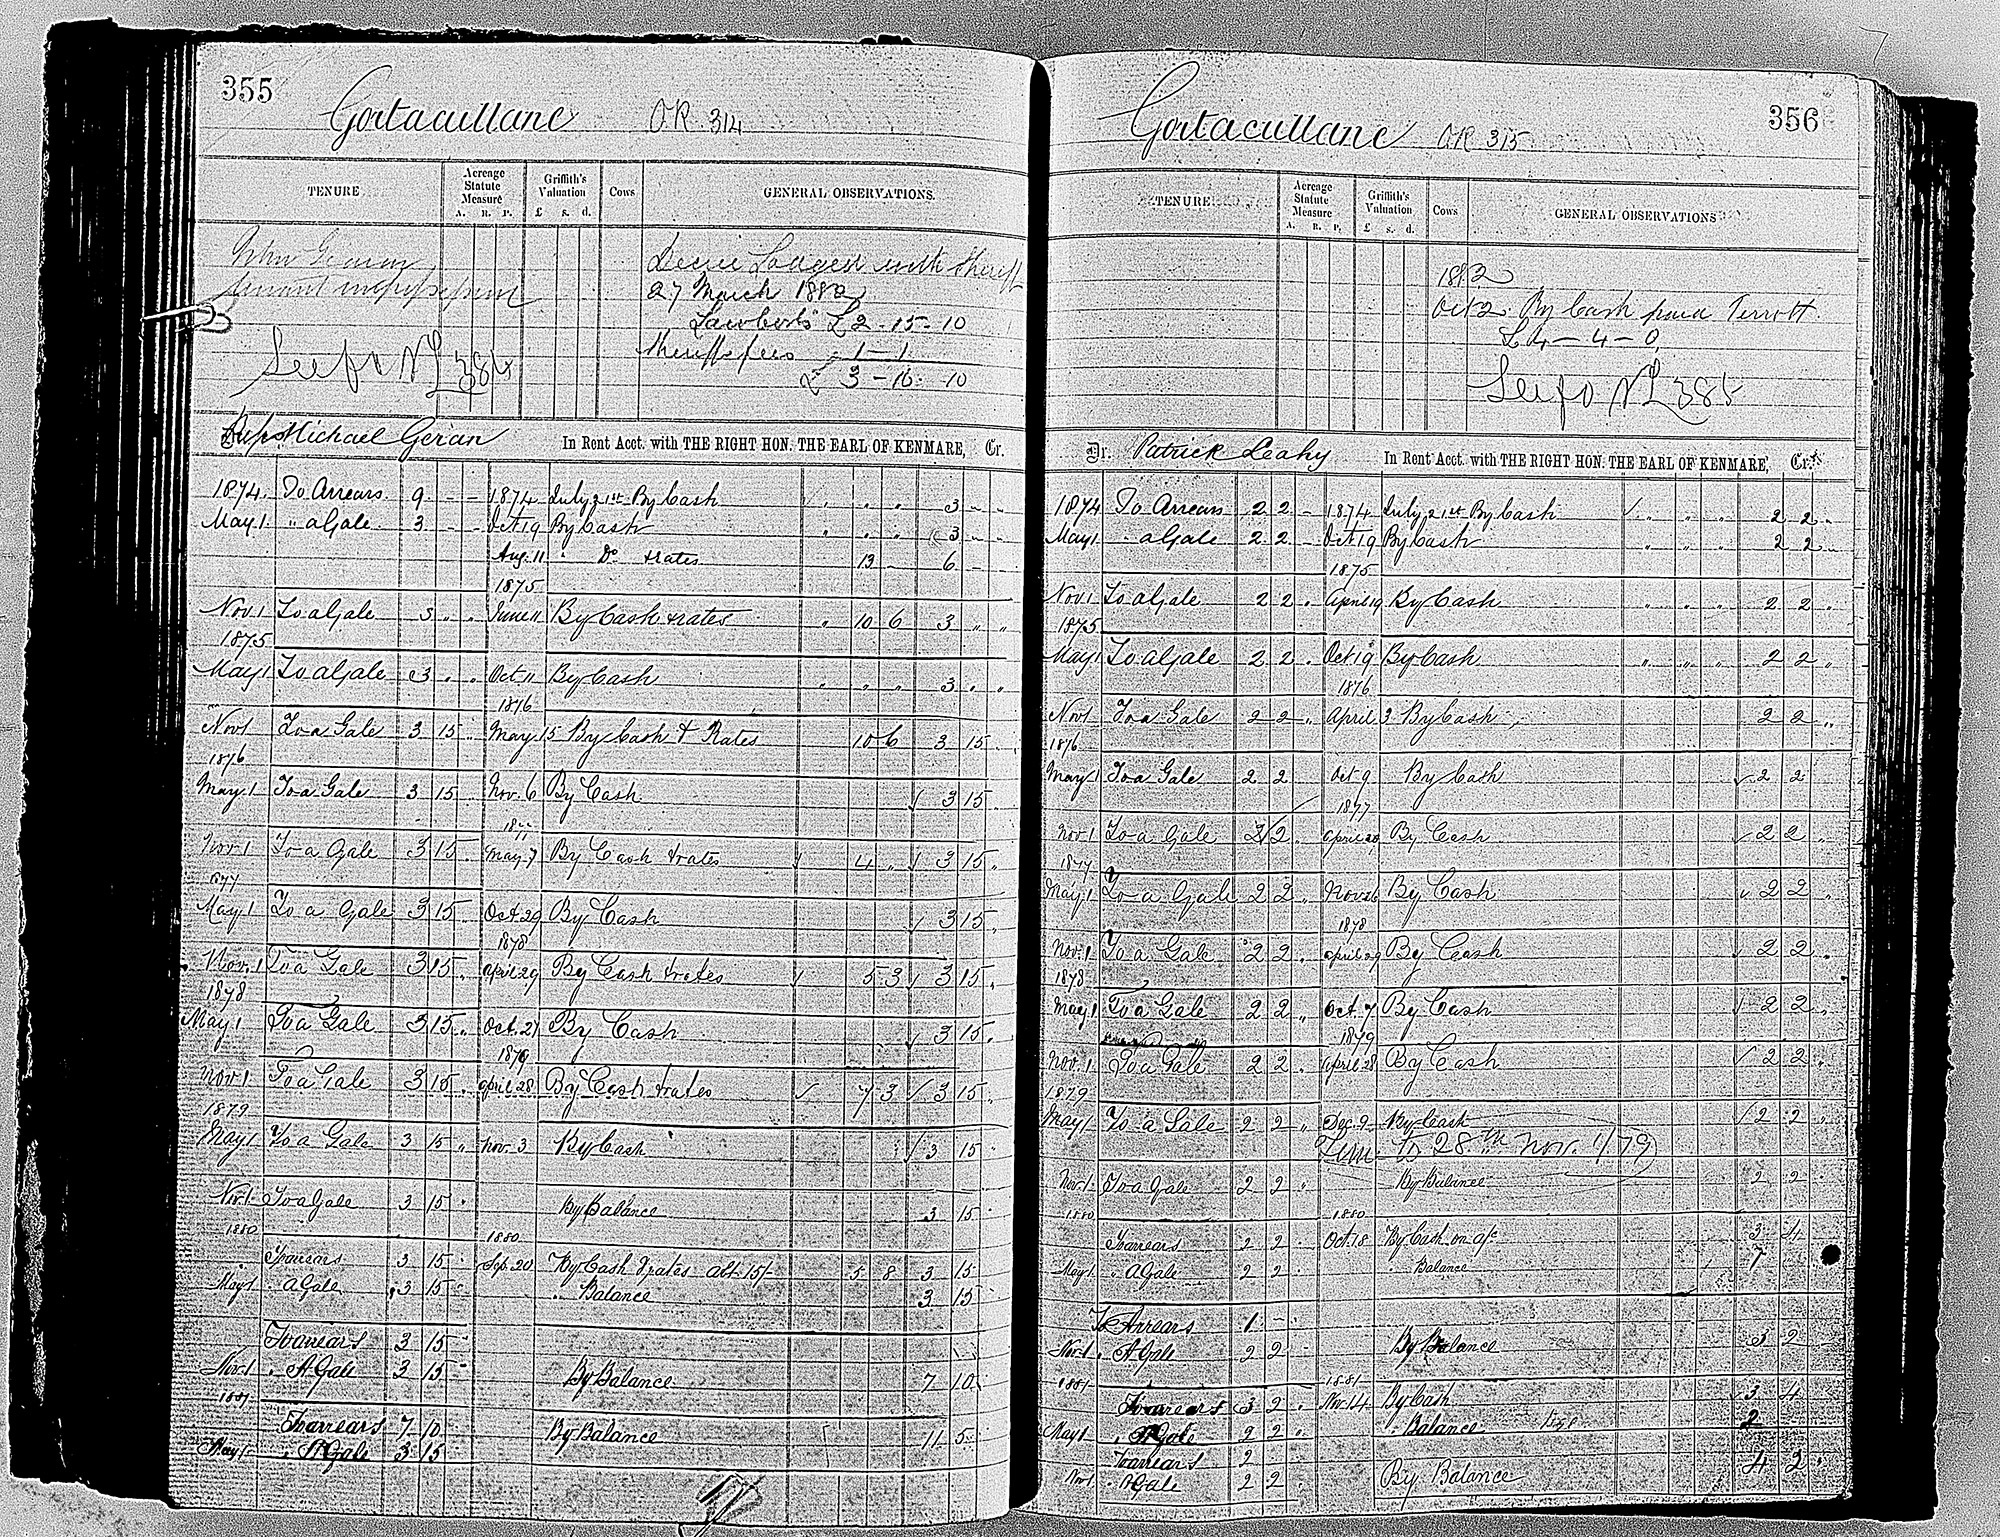 355
Gortacullane OR 314
TENURE
Acreage Statute Measure
A. R. P.
Griffith's Valuation
£ s. d.
Cows
GENERAL OBSERVATIONS.
John Geran
tenant in possession
See fo NL 384
Decree Lodged with Sheriff
27 March 1882
£2-15-10
Sheriffs fees 1-1
£ 3-16-10
Reps Michael Geran In Rent Acct. with THE RIGHT HON. THE EARL OF KENMARE, Cr.
1874 To Arrears 9 - - 1874 July 21st By Cash " " " 3 " "
May 1. " a Gale 3 - - Oct 19 By Cash " " " 3 " "
Aug. 11 " Do & rates 13 - 6 -
1875
Nov. 1 To a Gale 3 " " June 11 By Cash & rates " 10 6 3 " "
1875
May 1 To a Gale 3 " " Oct 11 By Cash " " " 3 " "
1876
Nov 1 To a Gale 3 15 " May 15 By Cash & Rates 10 6 3 15 "
1876
May 1 To a Gale 3 15 Nov. 6 By Cash 3 15 "
1877
Nov. 1 To a Gale 3 15 May 7 By Cash & rates 4 " 3 15 "
1877
May 1 To a Gale 3 15 " Oct. 29 By Cash 3 15 "
1878
Nov. 1 To a Gale 3 15 " April 29 By Cash & rates 5 3 3 15 "
1878
May 1 To a Gale 3 15 " Oct. 21 By Cash 3 15 "
1879
Nov 1 To a Gale 3 15 " April 28 By Cash & rates 7 3 3 15 "
1879
May 1 To a Gale 3 15 " Nov. 3 By Cash 3 15 "
Nov. 1 To a Gale 3 15 " By Balance 3 15 "
1880 1880
To arrears 3 15 " Sep. 20 By Cash & rates abt 15/- 5 8 3 15
May 1 " A Gale 3 15 " " Balance 3 15 "
To arrears 3 15 "
Nov. 1 " A Gale 3 15 " By Balance 7 10 "
1881
To arrears 7 10 By Balance 11 5 "
May 1 " A Gale 3 15
356
Gortacullane OR 315
TENURE
Acreage Statute Measure
A. R. P.
Griffith's Valuation
£ s. d.
Cows
GENERAL OBSERVATIONS
1882
Oct 2. By Cash paid Terrott
£4-4-0
See fo NL 385
Dr. Patrick Leahy In Rent Acct. with THE RIGHT HON. THE EARL OF KENMARE, Cr.
1874 To Arrears 2 2 - 1874 July 21st By Cash " " " 2 2 "
May 1. " a Gale 2 2 - Oct 19 By Cash " " " 2 2 "
1875
Nov 1 To a Gale 2 2 " April 19 By Cash " " " 2 2 "
1875
May 1 To a Gale 2 2 " Oct 19 By Cash " " " 2 2 "
1876
Nov 1 To a Gale 2 2 " April 3 By Cash 2 2 "
1876
May 1 To a Gale 2 2 Oct 9 By Cash 2 2
1877
Nov. 1 To a Gale 2 2 " April 28 By Cash 2 2 "
1877
May 1 To a Gale 2 2 " Nov 26 By Cash 2 2 "
1878
Nov. 1 To a Gale 2 2 " April 29 By Cash 2 2 "
1878
May 1 To a Gale 2 2 " Oct. 7 By Cash 2 2 "
1879
Nov. 1 To a Gale 2 2 " April 28 By Cash 2 2 "
1879
May 1 To a Gale 2 2 " Dec. 2 By Cash 2 2 "
Time to 28th Nov. 1/79
Nov. 1 To a Gale 2 2 " By Balance 2 2 "
1880 1880
To arrears 2 2 " Oct. 18 By Cash on a/c 3 4
May 1 " A Gale 2 2 " Balance 1
To Arrears 1 - "
Nov. 1 " A Gale 2 2 " By Balance 3 2 "
1881 1881
To arrears 3 2 " Nov 14 By Cash 3 4
May 1 " A Gale 2 2 " " Balance 2
To arrears 2
Nov 1 " A Gale 2 2 By Balance 4 2 "